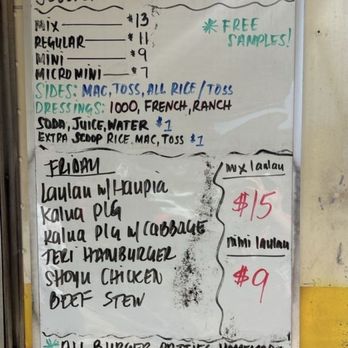 MIX $13
REGULAR $11
MINI $9
MICRO MINI $7
* FREE
SAMPLES!
SIDES: MAC, TOSS, ALL RICE/TOSS
DRESSINGS: 1000, FRENCH, RANCH
SODA, JUICE, WATER $1
EXTRA SCOOP RICE, MAC, TOSS $1
FRIDAY
LAULAU W/HAUPIA
KALUA PLG
KALUA PLG W/CABBAGE
TERI HAMBURGER
SHOYU CHICKEN
BEEF STEW
MIX LAULAU
$15
MINI LAULAU
$9
* ALL BURGER PATTIES HOMEMADE